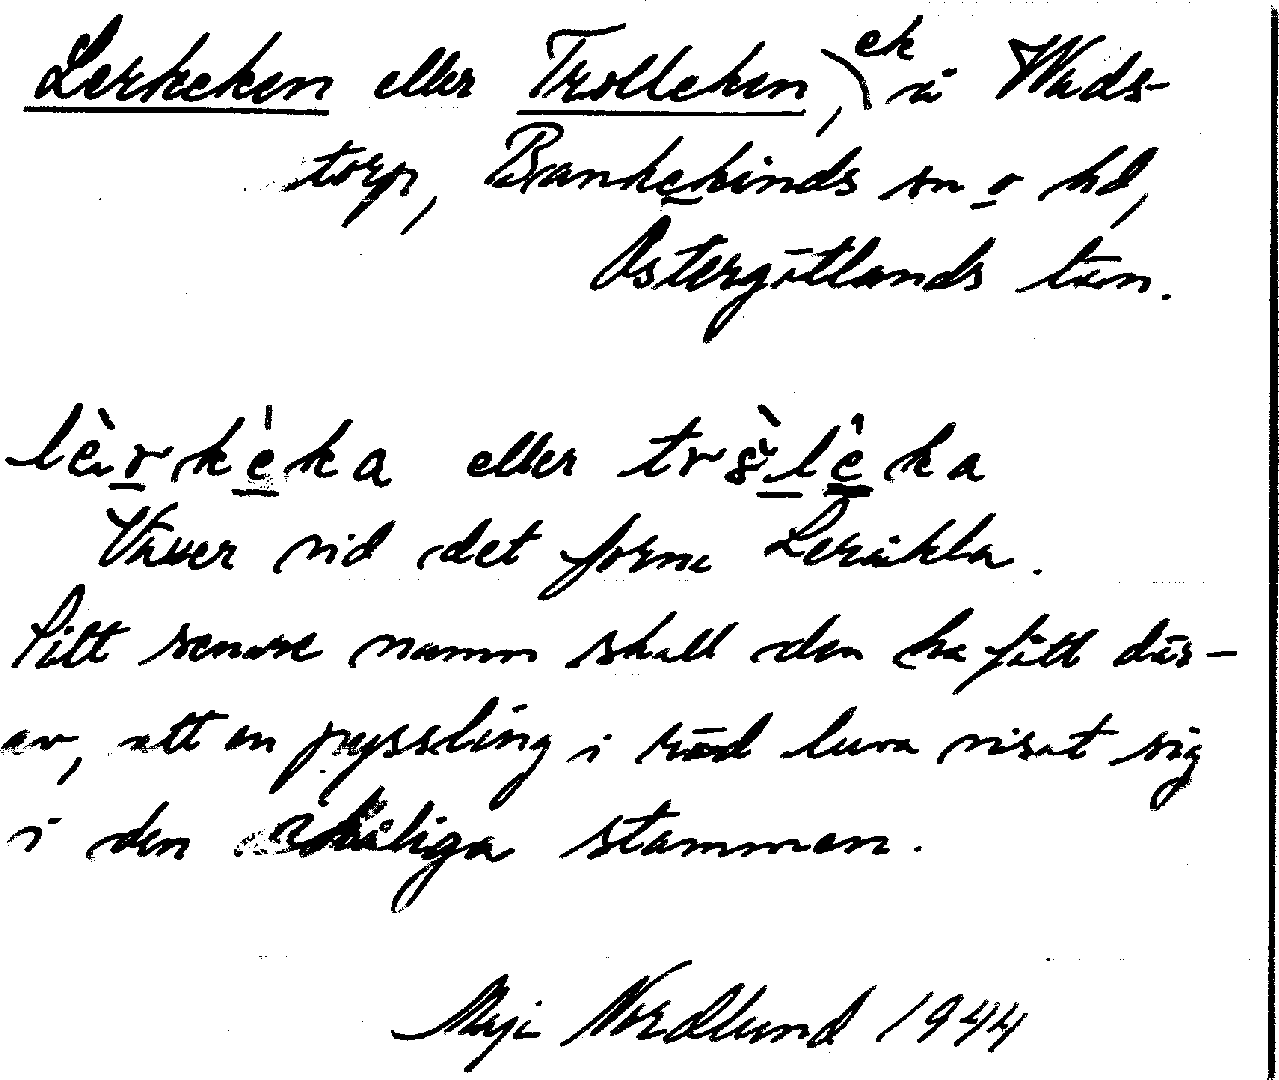 Lerkeken eller Trolleken, ek å Wads-
torp, Bankekinds sn o hd,
Östergötlands län.
lèrkeka eller tròleka
Växer vid det forna Leråkla.
Sitt senare namn skall den ha fått där-
av, att en pyssling i röd luva visat sig
i den ihåliga stammen.
Maja Nordlund 1944